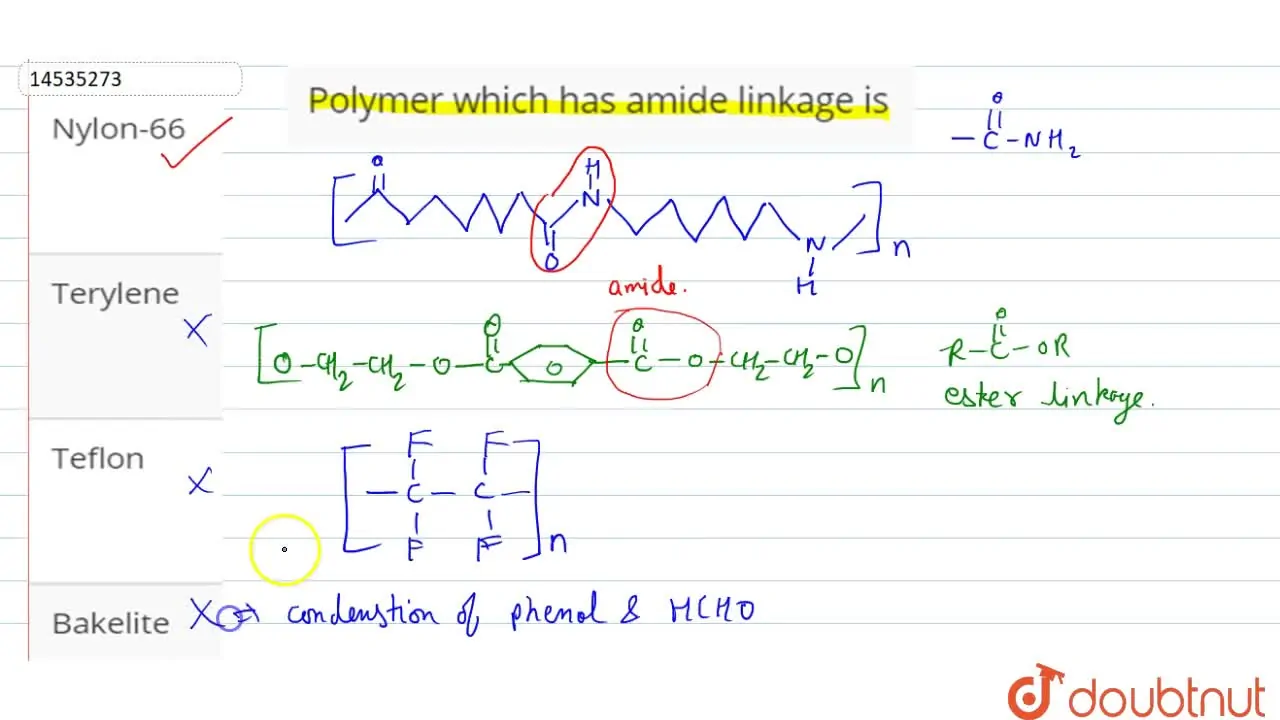 14535273
Polymer which has amide linkage is
O
— C – NH2
Nylon-66
O
H
N
O
N
H
n
amide.
Terylene
O
O
O
[O–CH2–CH2–O–C
C–O–CH2–CH2–O]n
R–C–OR
ester linkage.
Teflon
F F
—C—C—
F F
n
Bakelite
X ⇒ condenstion of phenol & HCHO
doubtnut